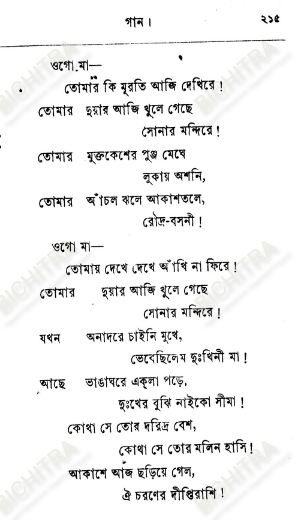 গান।
২১৫
ওগো মা—
তোমার কি মূরতি আজি দেখিরে!
তোমার দুয়ার আজি খুলে গেছে
সোনার মন্দিরে!
তোমার মুক্তকেশের পুঞ্জ মেঘে
লুকায় অশনি,
তোমার আঁচল ঝলে আকাশতলে,
রৌদ্র-বসনী!
ওগো মা—
তোমায় দেখে দেখে আঁখি না ফিরে!
তোমার দুয়ার আজি খুলে গেছে
সোনার মন্দিরে!
যখন অনাদরে চাইনি মুখে,
ভেবেছিলেম দুঃখিনী মা!
আছে ভাঙাঘরে একলা পড়ে,
দুঃখের বুঝি নাইকো সীমা!
কোথা সে তোর দরিদ্র বেশ,
কোথা সে তোর মলিন হাসি!
আকাশে আজ ছড়িয়ে গেল,
ঐ চরণের দীপ্তিরাশি!
BICHITRA